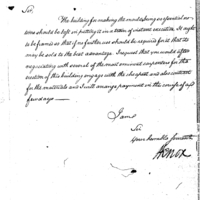 Sir,
The building for making the model being as essential
no time should be lost in putting it in a train of instant execution. It ought
to be framed so that if no further use should be required for it that it
may be sold to the best advantage. I request that you would after
negociating with several of the most eminent carpenters for the
erection of this building engage with the cheapest and also contract
for the materials and I will arrange payments in the course of a
few days —
I am
Sir
Your humble servant
HKnox